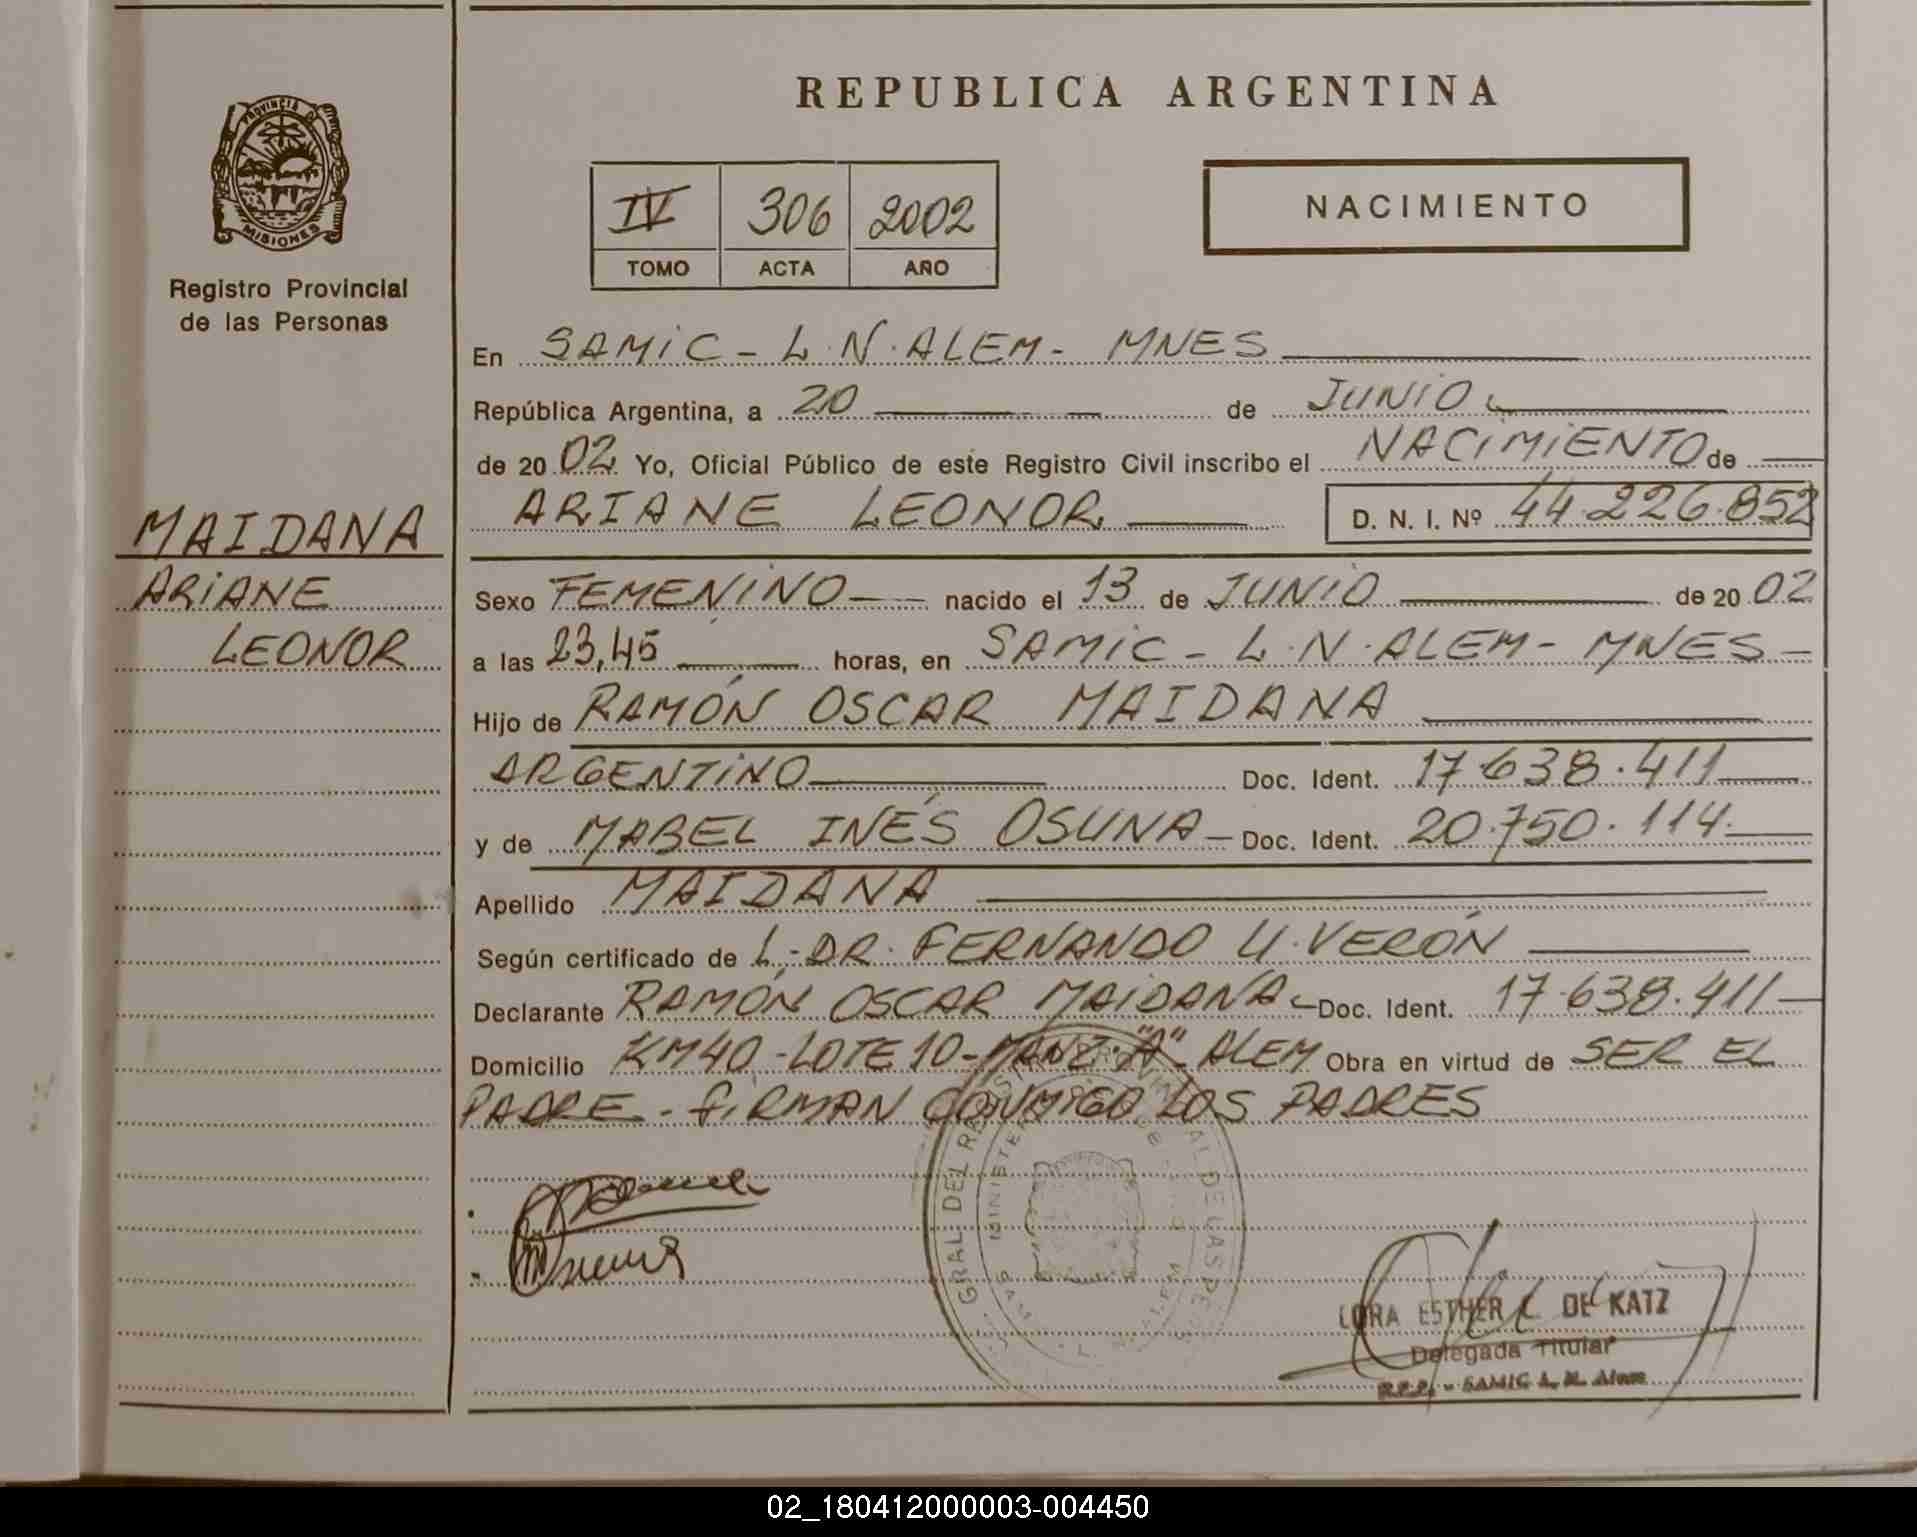 REPUBLICA ARGENTINA
PROVINCIA DE
MISIONES
Registro Provincial
de las Personas
IV 306 2002
TOMO ACTA AÑO
NACIMIENTO
En SAMIC - L.N. ALEM - MNES
República Argentina, a 20 de JUNIO
de 2002 Yo, Oficial Público de este Registro Civil inscribo el NACIMIENTO de
ARIANE LEONOR D. N. I. Nº 44.226.852
MAIDANA
ARIANE
LEONOR
Sexo FEMENINO nacido el 13 de JUNIO de 2002
a las 23,45 horas, en SAMIC - L.N. ALEM - MNES -
Hijo de RAMÓN OSCAR MAIDANA
ARGENTINO Doc. Ident. 17.638.411
y de MABEL INÉS OSUNA - Doc. Ident. 20.750.114.
Apellido MAIDANA
Según certificado de L.- DR. FERNANDO U. VERÓN
Declarante RAMÓN OSCAR MAIDANA - Doc. Ident. 17.638.411
Domicilio KM40 - LOTE 10 - MANZ. "A" - ALEM Obra en virtud de SER EL
PADRE - FIRMAN CONMIGO LOS PADRES
GRAL DEL REGISTRO PROVINCIAL DE LAS PE
MINISTE
ESTHER L. DE KATZ
Delegada Titular
R.P.P. - SAMIC L. N. Alem
02_180412000003-004450